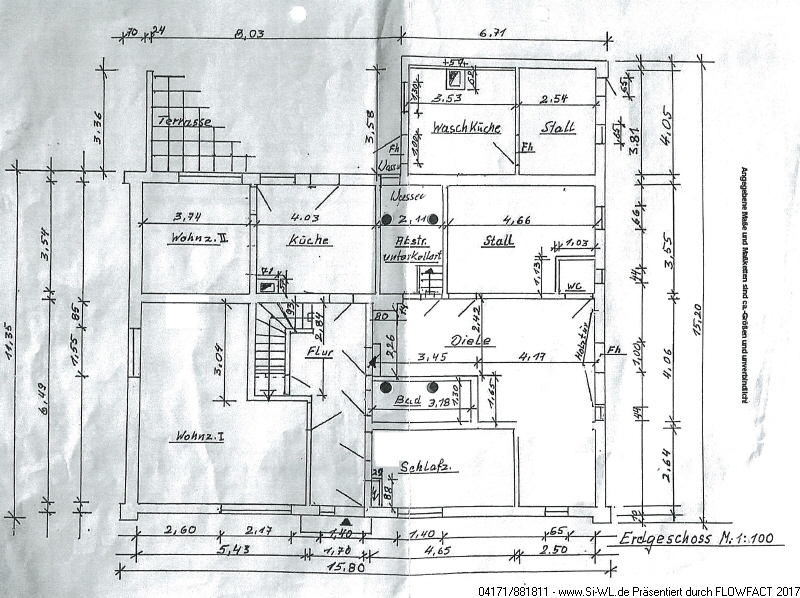 70 24 8,03 6,71
3,36
Terrasse
3,58
54
68
1,30
3,53 2,54
Waschküche Stall
1,00
Fh Fh
65
65
3.81
4,05
Wasser
3,74 4.03 2,11 4,66
Wohnz. II Küche Abstr. Stall
unterkellert
1,03
1,13
WC
66
3,55
44
3,54
71
93
2,84
80
2,42
Diele
Holztür
Fh
1,00
4,06
15,20
11,35
1,55
85
3,04
Flur
2,26
3,45 4,17
6,49
Bad 3,18
1,30
1,65
49
Wohnz. I
Schlafz.
88
2,64
2,60 2,17 1,40 1,40 65
5,43 1,70 4,65 2.50
15.80
Erdgeschoss M. 1:100
Angegebene Maße und Maßketten sind ca.-Größen und unverbindlich!
04171/881811 - www.Si-WL.de Präsentiert durch FLOWFACT 2017